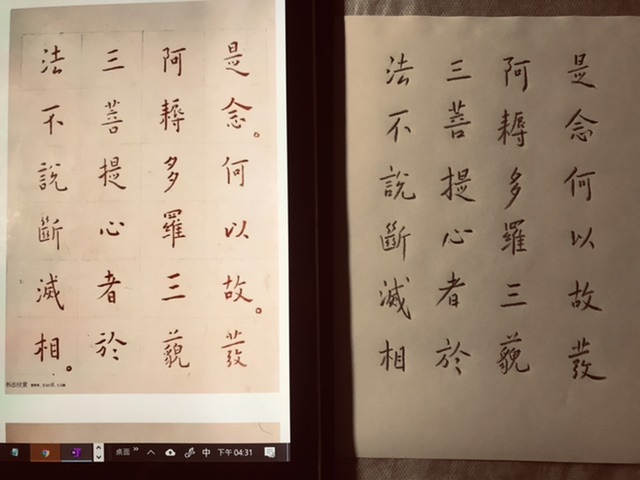 是念。何以故。發
阿耨多羅三藐
三菩提心者於
法不說斷滅相。
书法欣赏 www.yac8.com
桌面
中
下午 04:31
是念何以故發
阿耨多羅三藐
三菩提心者於
法不說斷滅相